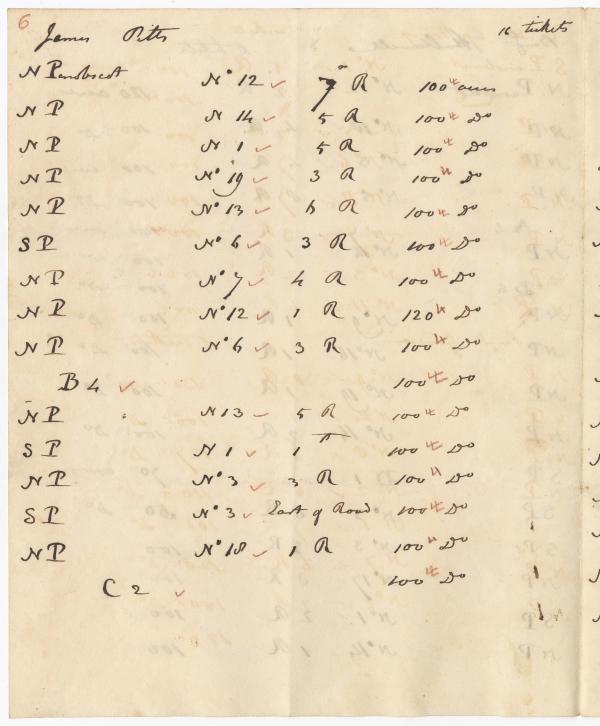 6
James Pitts 16 tickets
N Penobscot No 12 ✓ 7 R 100 4 acres
N P N 14 ✓ 5 R 100 4 Do
N P N 1 ✓ 5 R 100 4 Do
N P No 19 ✓ 3 R 100 4 Do
N P No 13 ✓ 6 R 100 4 Do
S P No 6 ✓ 3 R 100 4 Do
N P No 7 ✓ 4 R 100 4 Do
N P No 12 ✓ 1 R 120 4 Do
N P No 6 ✓ 3 R 100 4 Do
B 4 ✓ 100 4 Do
N P N 13 ✓ 5 R 100 4 Do
S P N 1 ✓ 1 100 4 Do
N P No 3 ✓ 3 R 100 4 Do
S P No 3 ✓ East of Road 100 4 Do
N P No 18 ✓ 1 R 100 4 Do
C 2 ✓ 100 4 Do